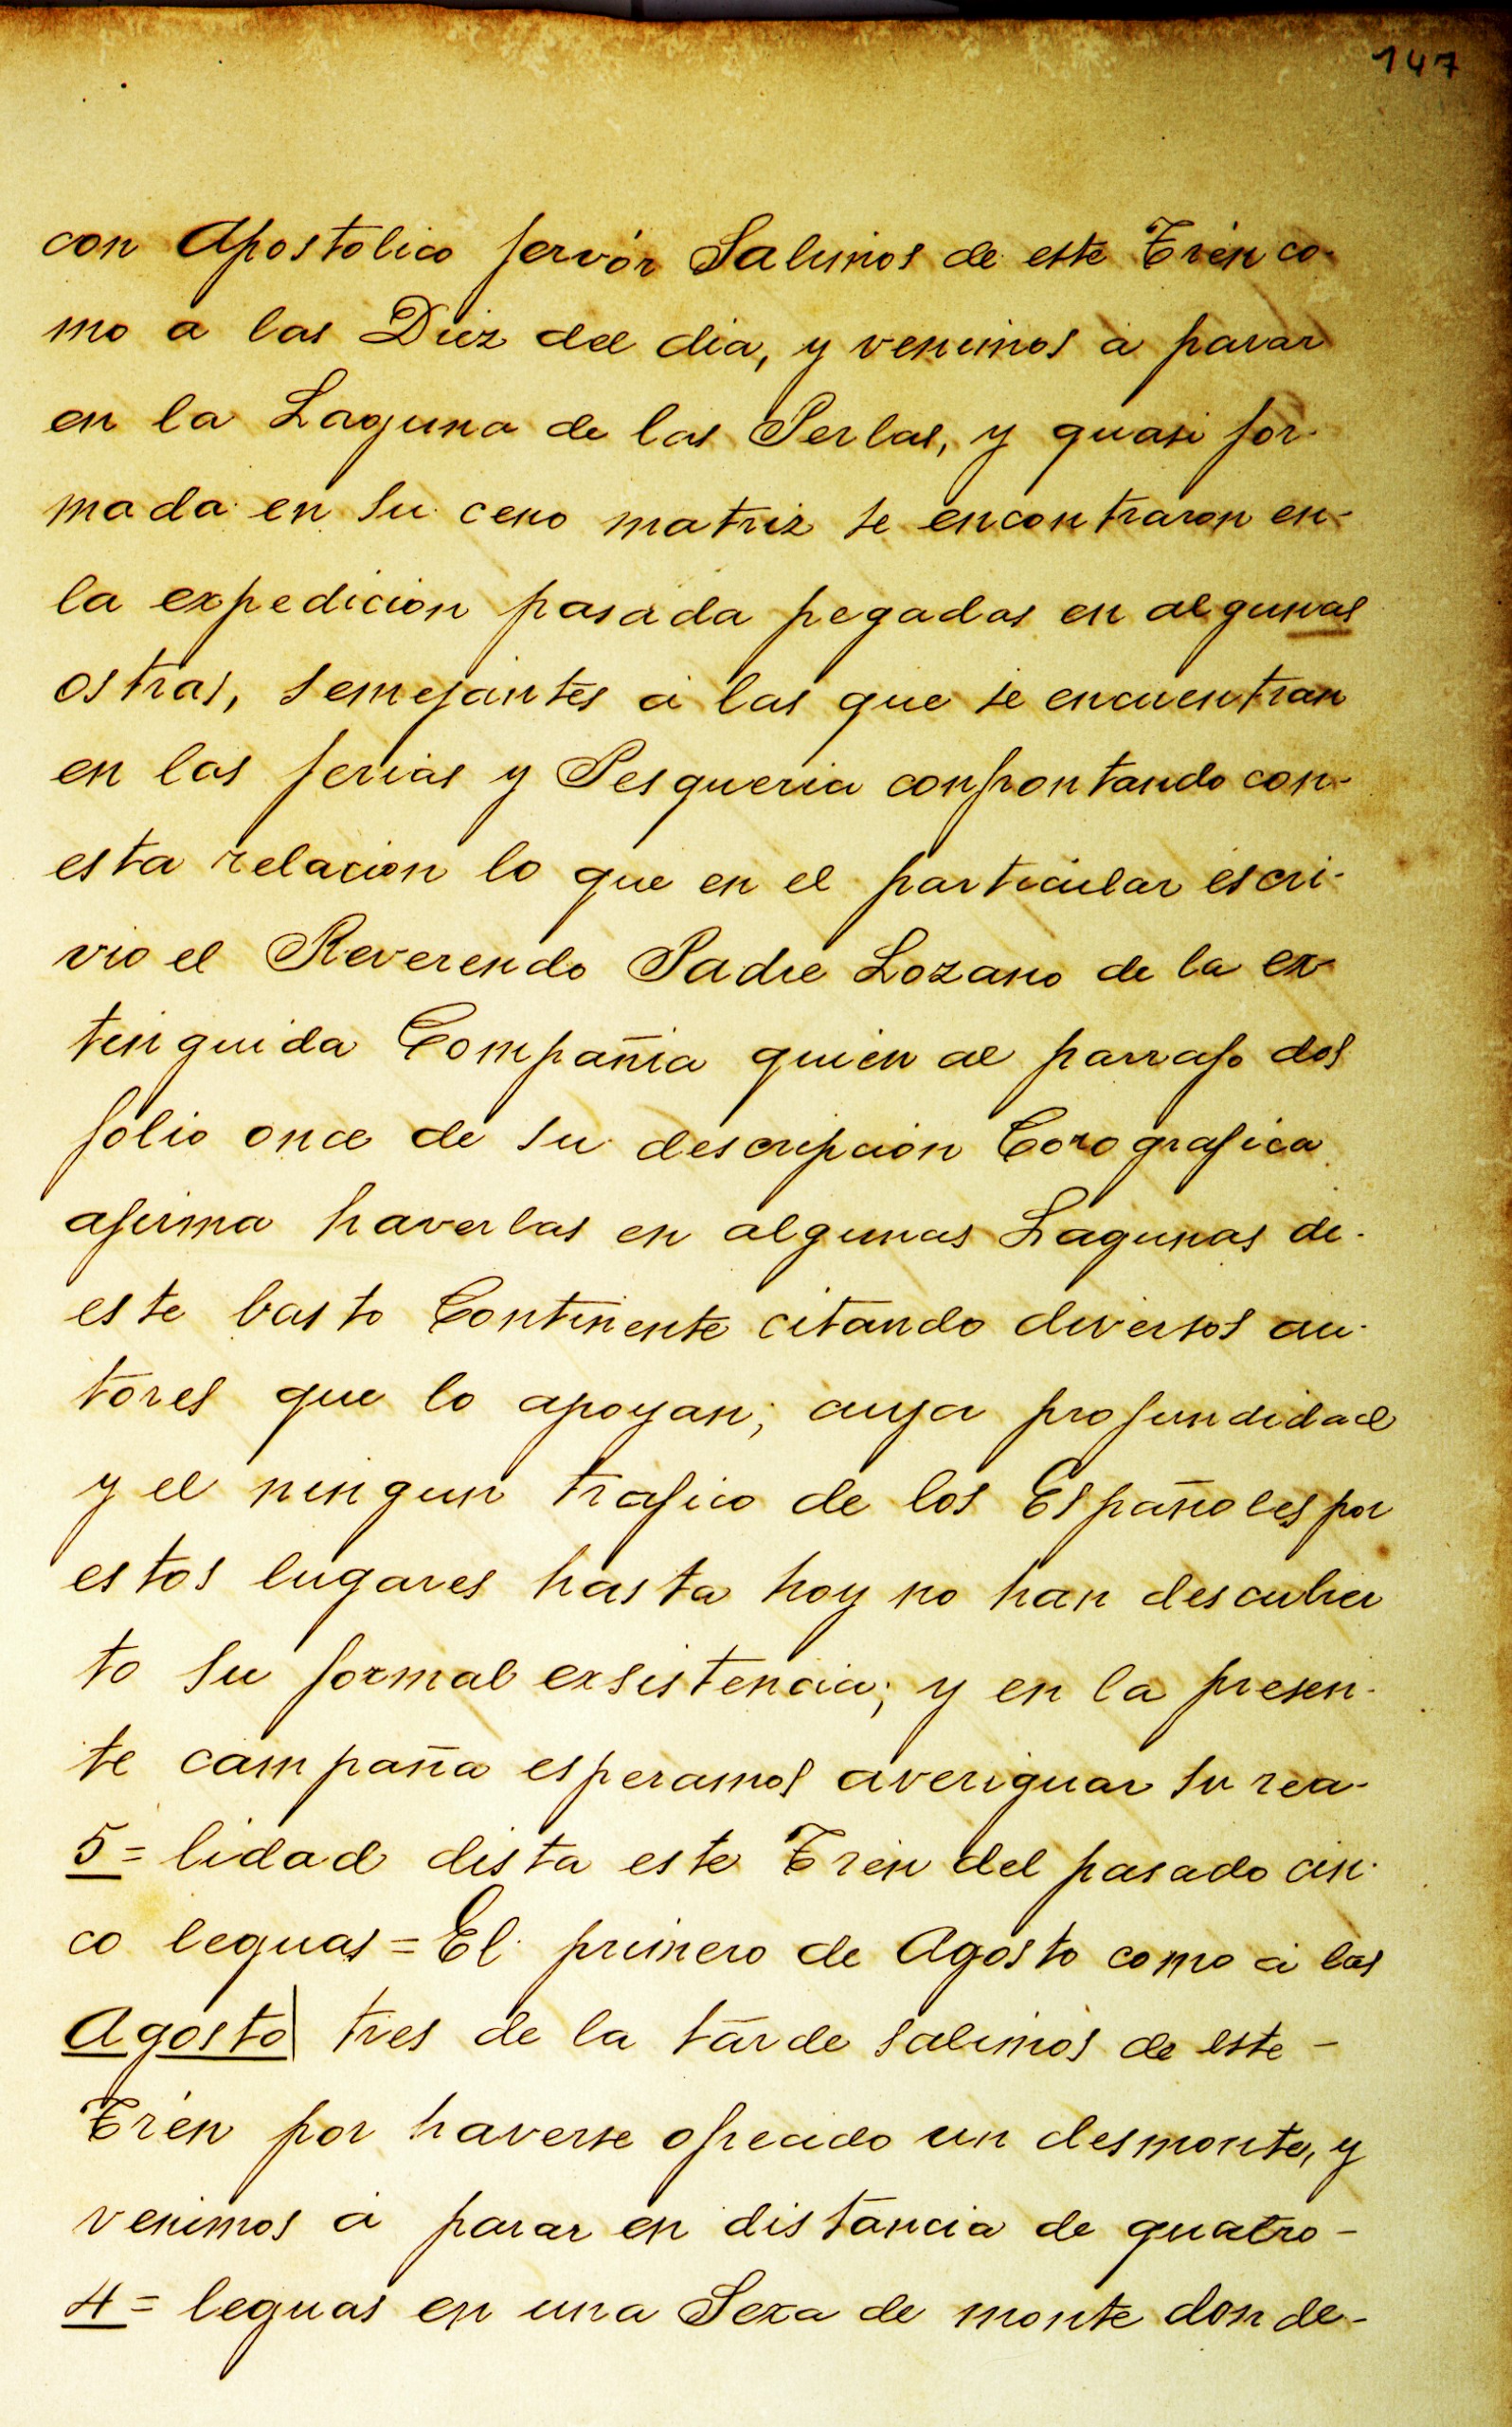 147
con Apostolico fervór Salimos de este Trén co-
mo a las Diez del dia, y venimos à parar
en la Laguna de las Perlas, y quasi for-
mada en su ceno matriz se encontraron en-
la expedicion pasada pegadas en algunas
ostras, semejantes à las que se encuentran
en las ferias y Pesqueria confrontando con-
esta relacion lo que en el particular escri-
vio el Reverendo Padre Lozano de la ex-
tinguida Compañia quien al parrafo dos
folio once de su descripcion Corografica
afirma haverlas en algunas Lagunas de-
este basto Continente citando diversos au-
tores que lo apoyan; cuya profundidad
y el ningun trafico de los Españoles por
estos lugares hasta hoy no han descubier
to su formal exsistencia; y en la presen-
te campaña esperamos averiguar su rea-
5= lidad dista este Trén del pasado cin-
co leguas = El primero de Agosto como à las
Agosto| tres de la tarde salimos de este -
Trén por haverse ofrecido un desmonte, y
venimos à parar en distancia de quatro -
4= leguas en una Sexa de monte donde-